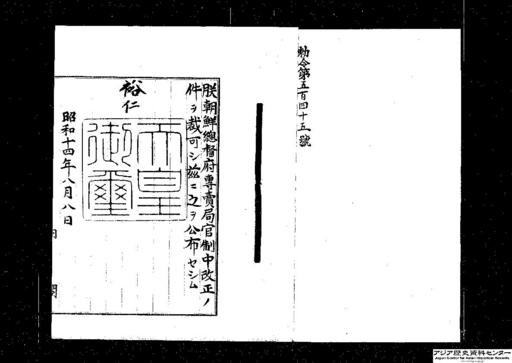 勅令第五百四十五號
朕朝鮮總督府專賣局官制中改正ノ
件ヲ裁可シ茲ニ之ヲ公布セシム
裕仁
天皇
御璽
昭和十四年八月八日
内閣
アジア歴史資料センター
Japan Center for Asian Historical Records